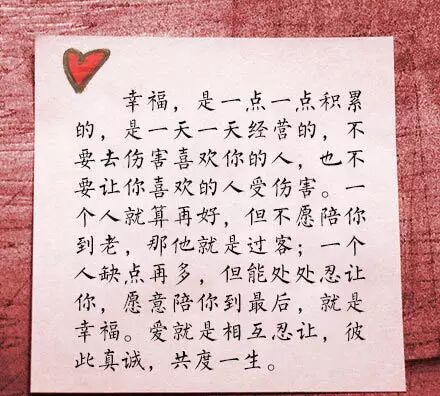 幸福，是一点一点积累
的，是一天一天经营的，不
要去伤害喜欢你的人，也不
要让你喜欢的人受伤害。一
个人就算再好，但不愿陪你
到老，那他就是过客；一个
人缺点再多，但能处处忍让
你，愿意陪你到最后，就是
幸福。爱就是相互忍让，彼
此真诚，共度一生。